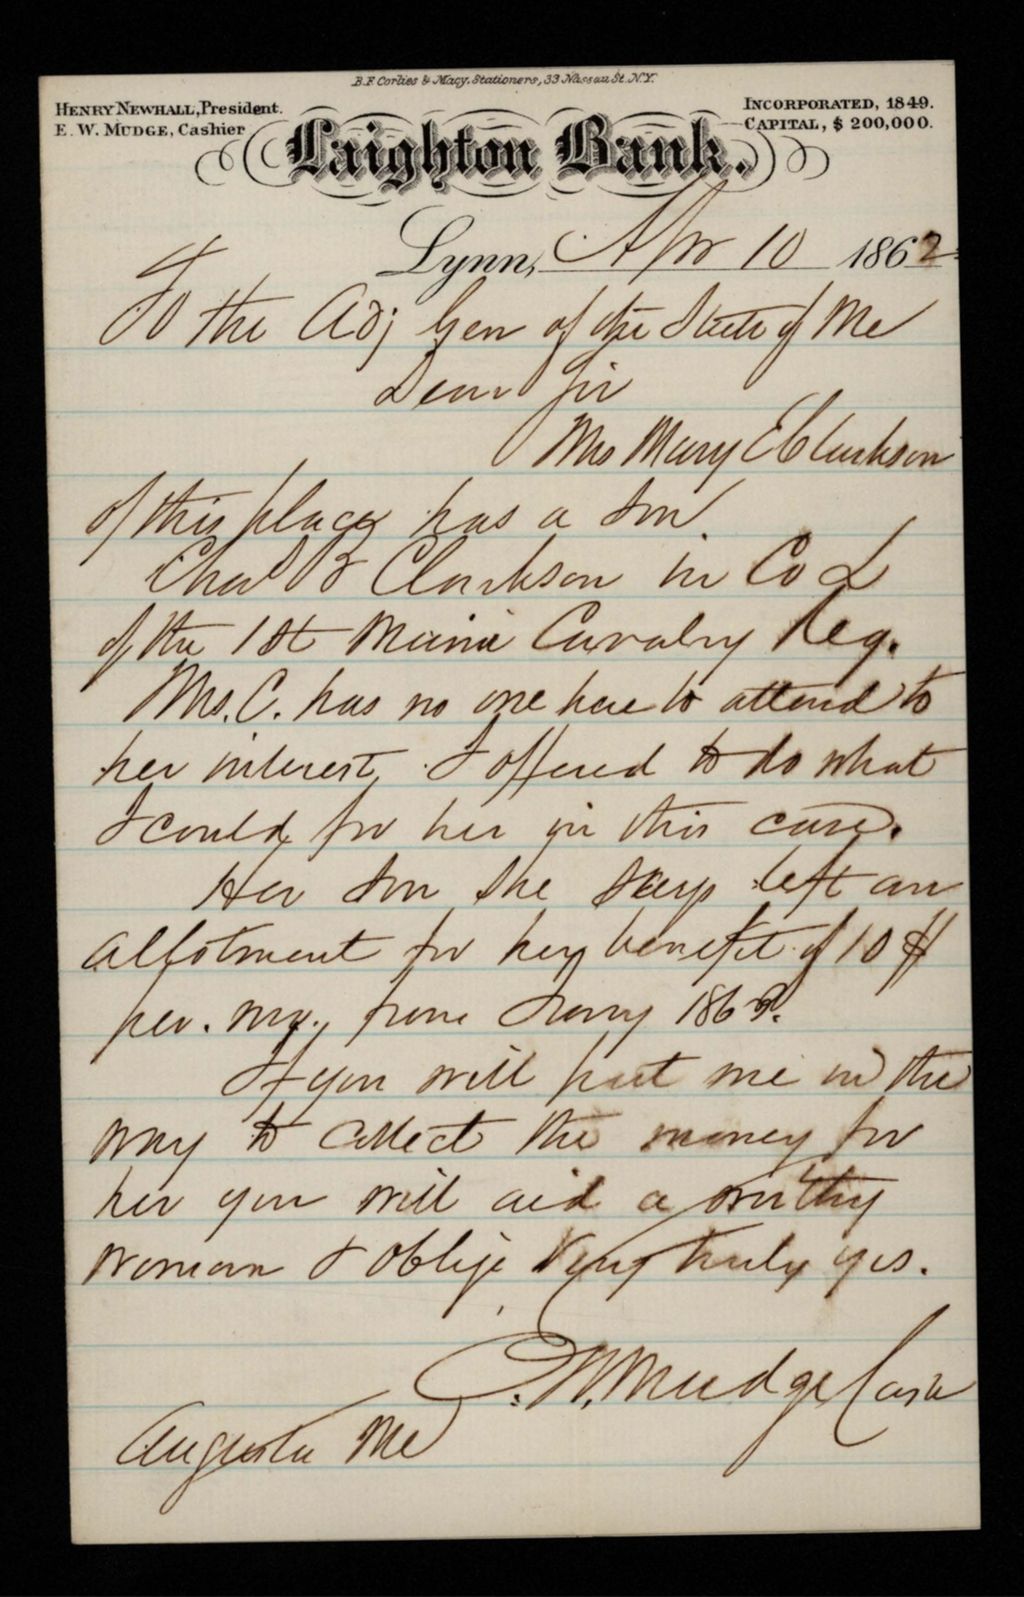 B.F. Corlies & Macy, Stationers, 33 Nassau St. N.Y.
HENRY NEWHALL, President.
E. W. MUDGE, Cashier
INCORPORATED, 1849.
CAPITAL, $ 200,000.
Laighton Bank.
Lynn, Apr 10 1862
To the Adj Gen of the State of Me
Dear Sir
Mrs Mary E Clarkson
of this place has a son
Chas B Clarkson in Co L
of the 1st Maine Cavalry Reg.
Mrs. C. has no one here to attend to
her interest, I offered to do what
I could for her in this case.
Her son she says left an
allotment for her benefit of 10 $
per. mo., from Jany 1862.
If you will put me in the
way to collect the money for
her you will aid a worthy
woman & oblige Very truly yrs.
E. W. Mudge Cash
Augusta Me